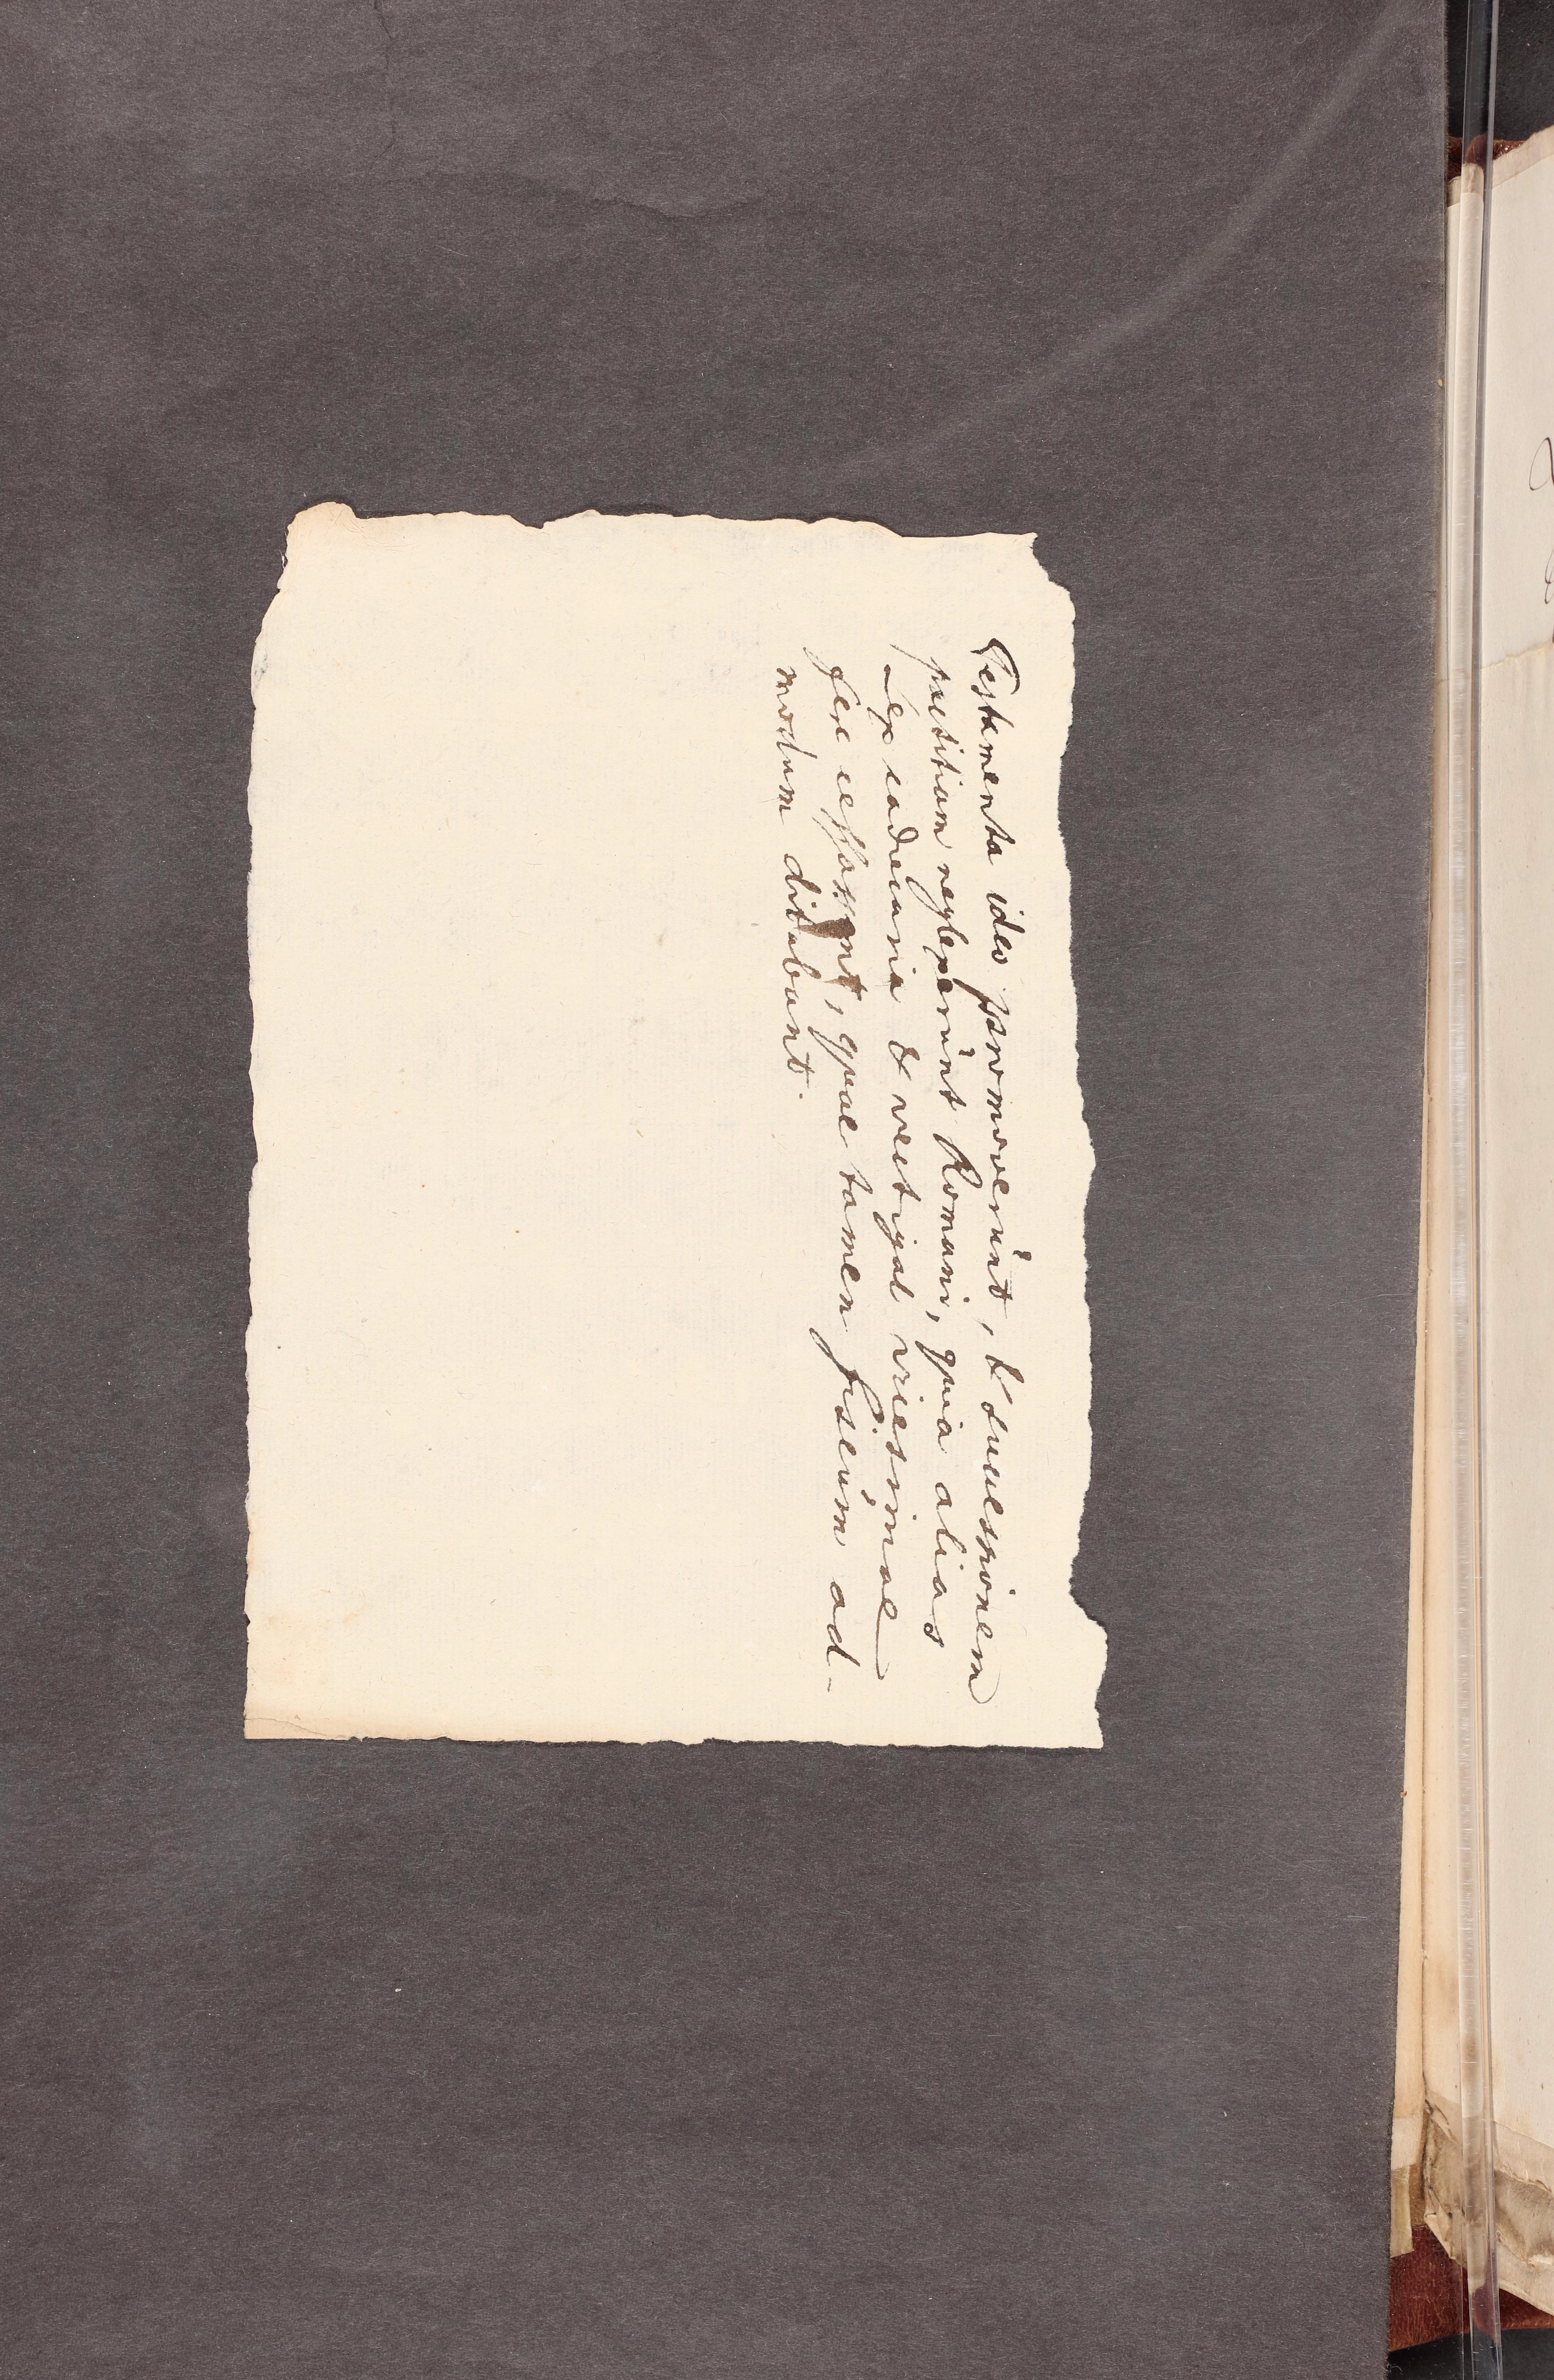 Testamenta ideo promoverunt, & successionem
pactitiam neglexerunt Romani, quia alias
Lex caducaria & vectigal vicesimae
fere cessassent, quae tamen fiscum ad-
modum ditabant.